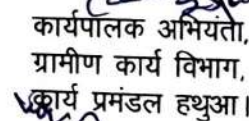 कार्यपालक अभियंता,
ग्रामीण कार्य विभाग,
कार्य प्रमंडल हथुआ।